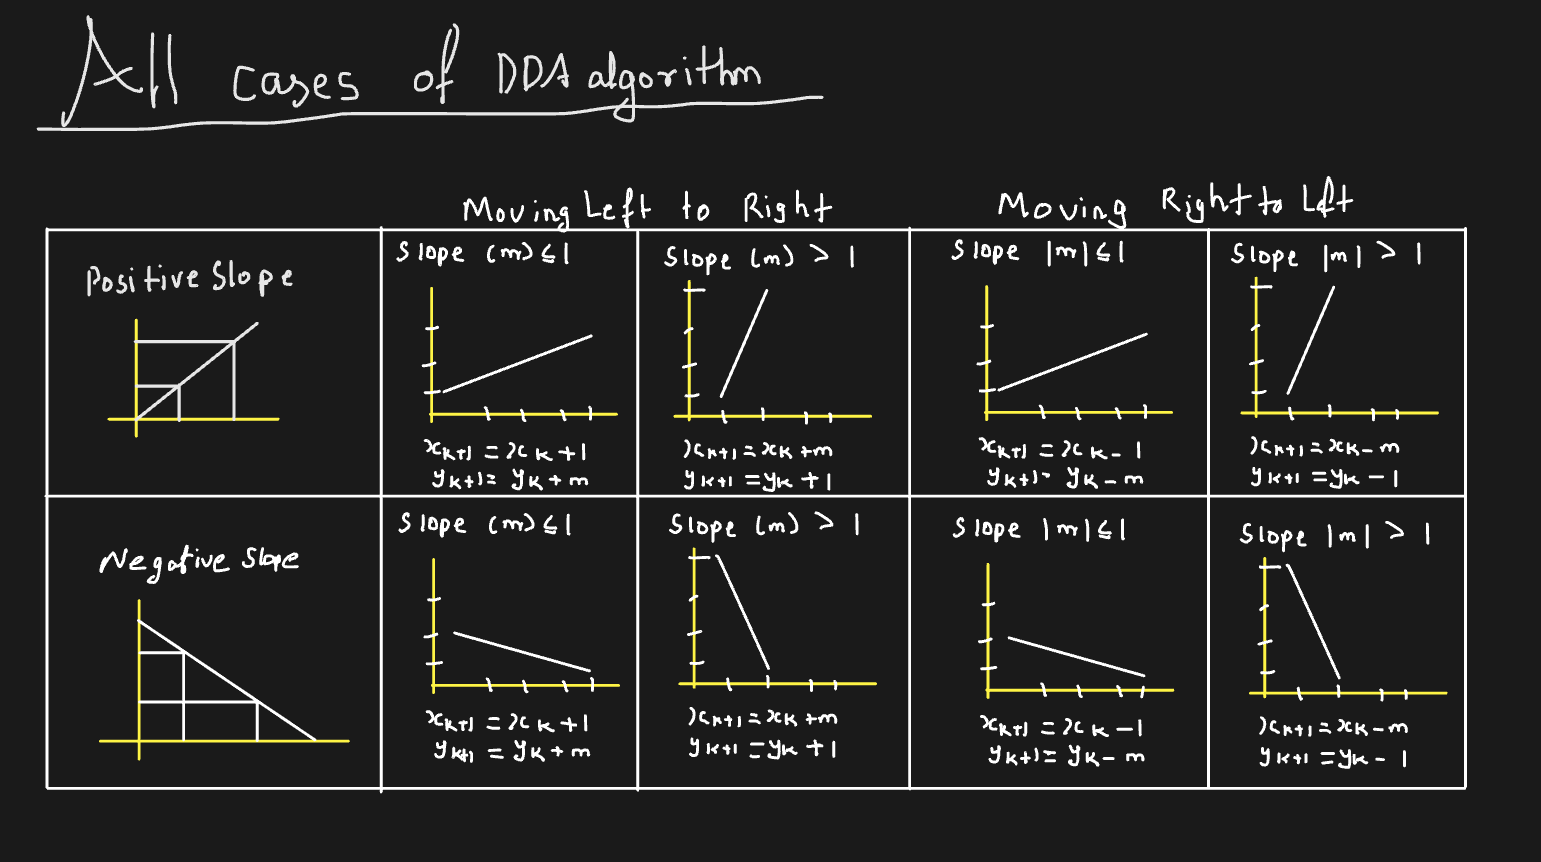 All cases of DDA algorithm
Moving Left to Right
Moving Right to Left
Positive Slope
Slope (m) ≤ 1
x_{k+1} = x_k + 1
y_{k+1} = y_k + m
Slope (m) > 1
x_{k+1} = x_k + m
y_{k+1} = y_k + 1
Slope |m| ≤ 1
x_{k+1} = x_k - 1
y_{k+1} = y_k - m
Slope |m| > 1
x_{k+1} = x_k - m
y_{k+1} = y_k - 1
Negative Slope
Slope (m) ≤ 1
x_{k+1} = x_k + 1
y_{k+1} = y_k + m
Slope (m) > 1
x_{k+1} = x_k + m
y_{k+1} = y_k + 1
Slope |m| ≤ 1
x_{k+1} = x_k - 1
y_{k+1} = y_k - m
Slope |m| > 1
x_{k+1} = x_k - m
y_{k+1} = y_k - 1